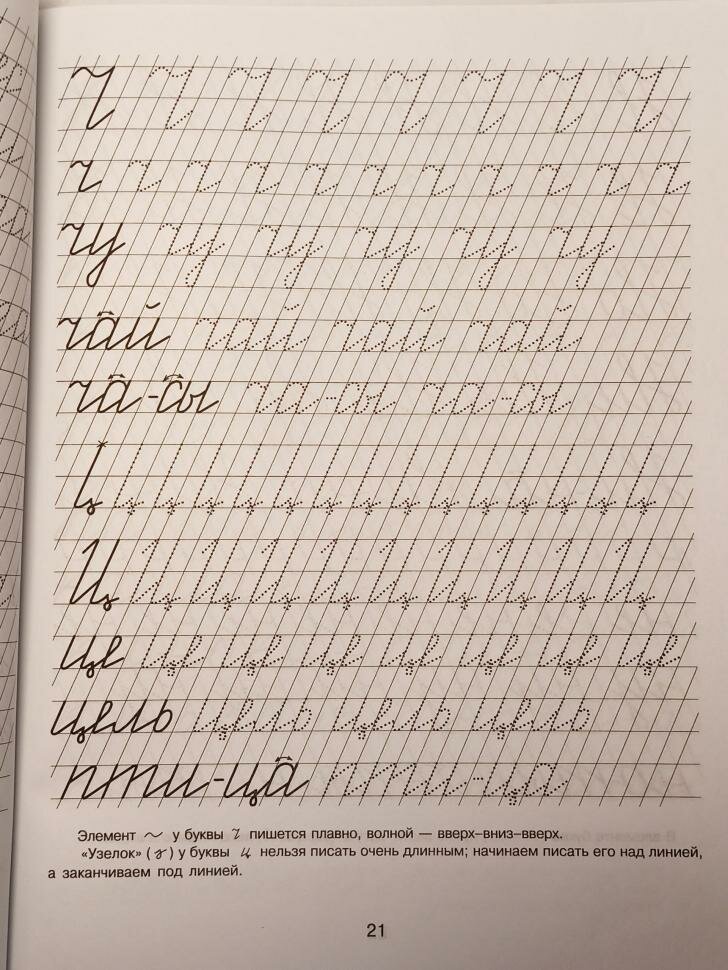 Ч Ч Ч Ч Ч Ч Ч Ч
ч ч ч ч ч ч ч ч ч ч ч
чу чу чу чу чу чу
чай чай чай чай
ча-сы ча-сы ча-сы
Ц Ц Ц Ц Ц Ц Ц Ц Ц
це це це це це це це це
цель цель цель цель
пти-ца пти-ца
Элемент ~ у буквы Ч пишется плавно, волной — вверх–вниз–вверх.
«Узелок» ( ) у буквы ц нельзя писать очень длинным; начинаем писать его над линией,
а заканчиваем под линией.
21